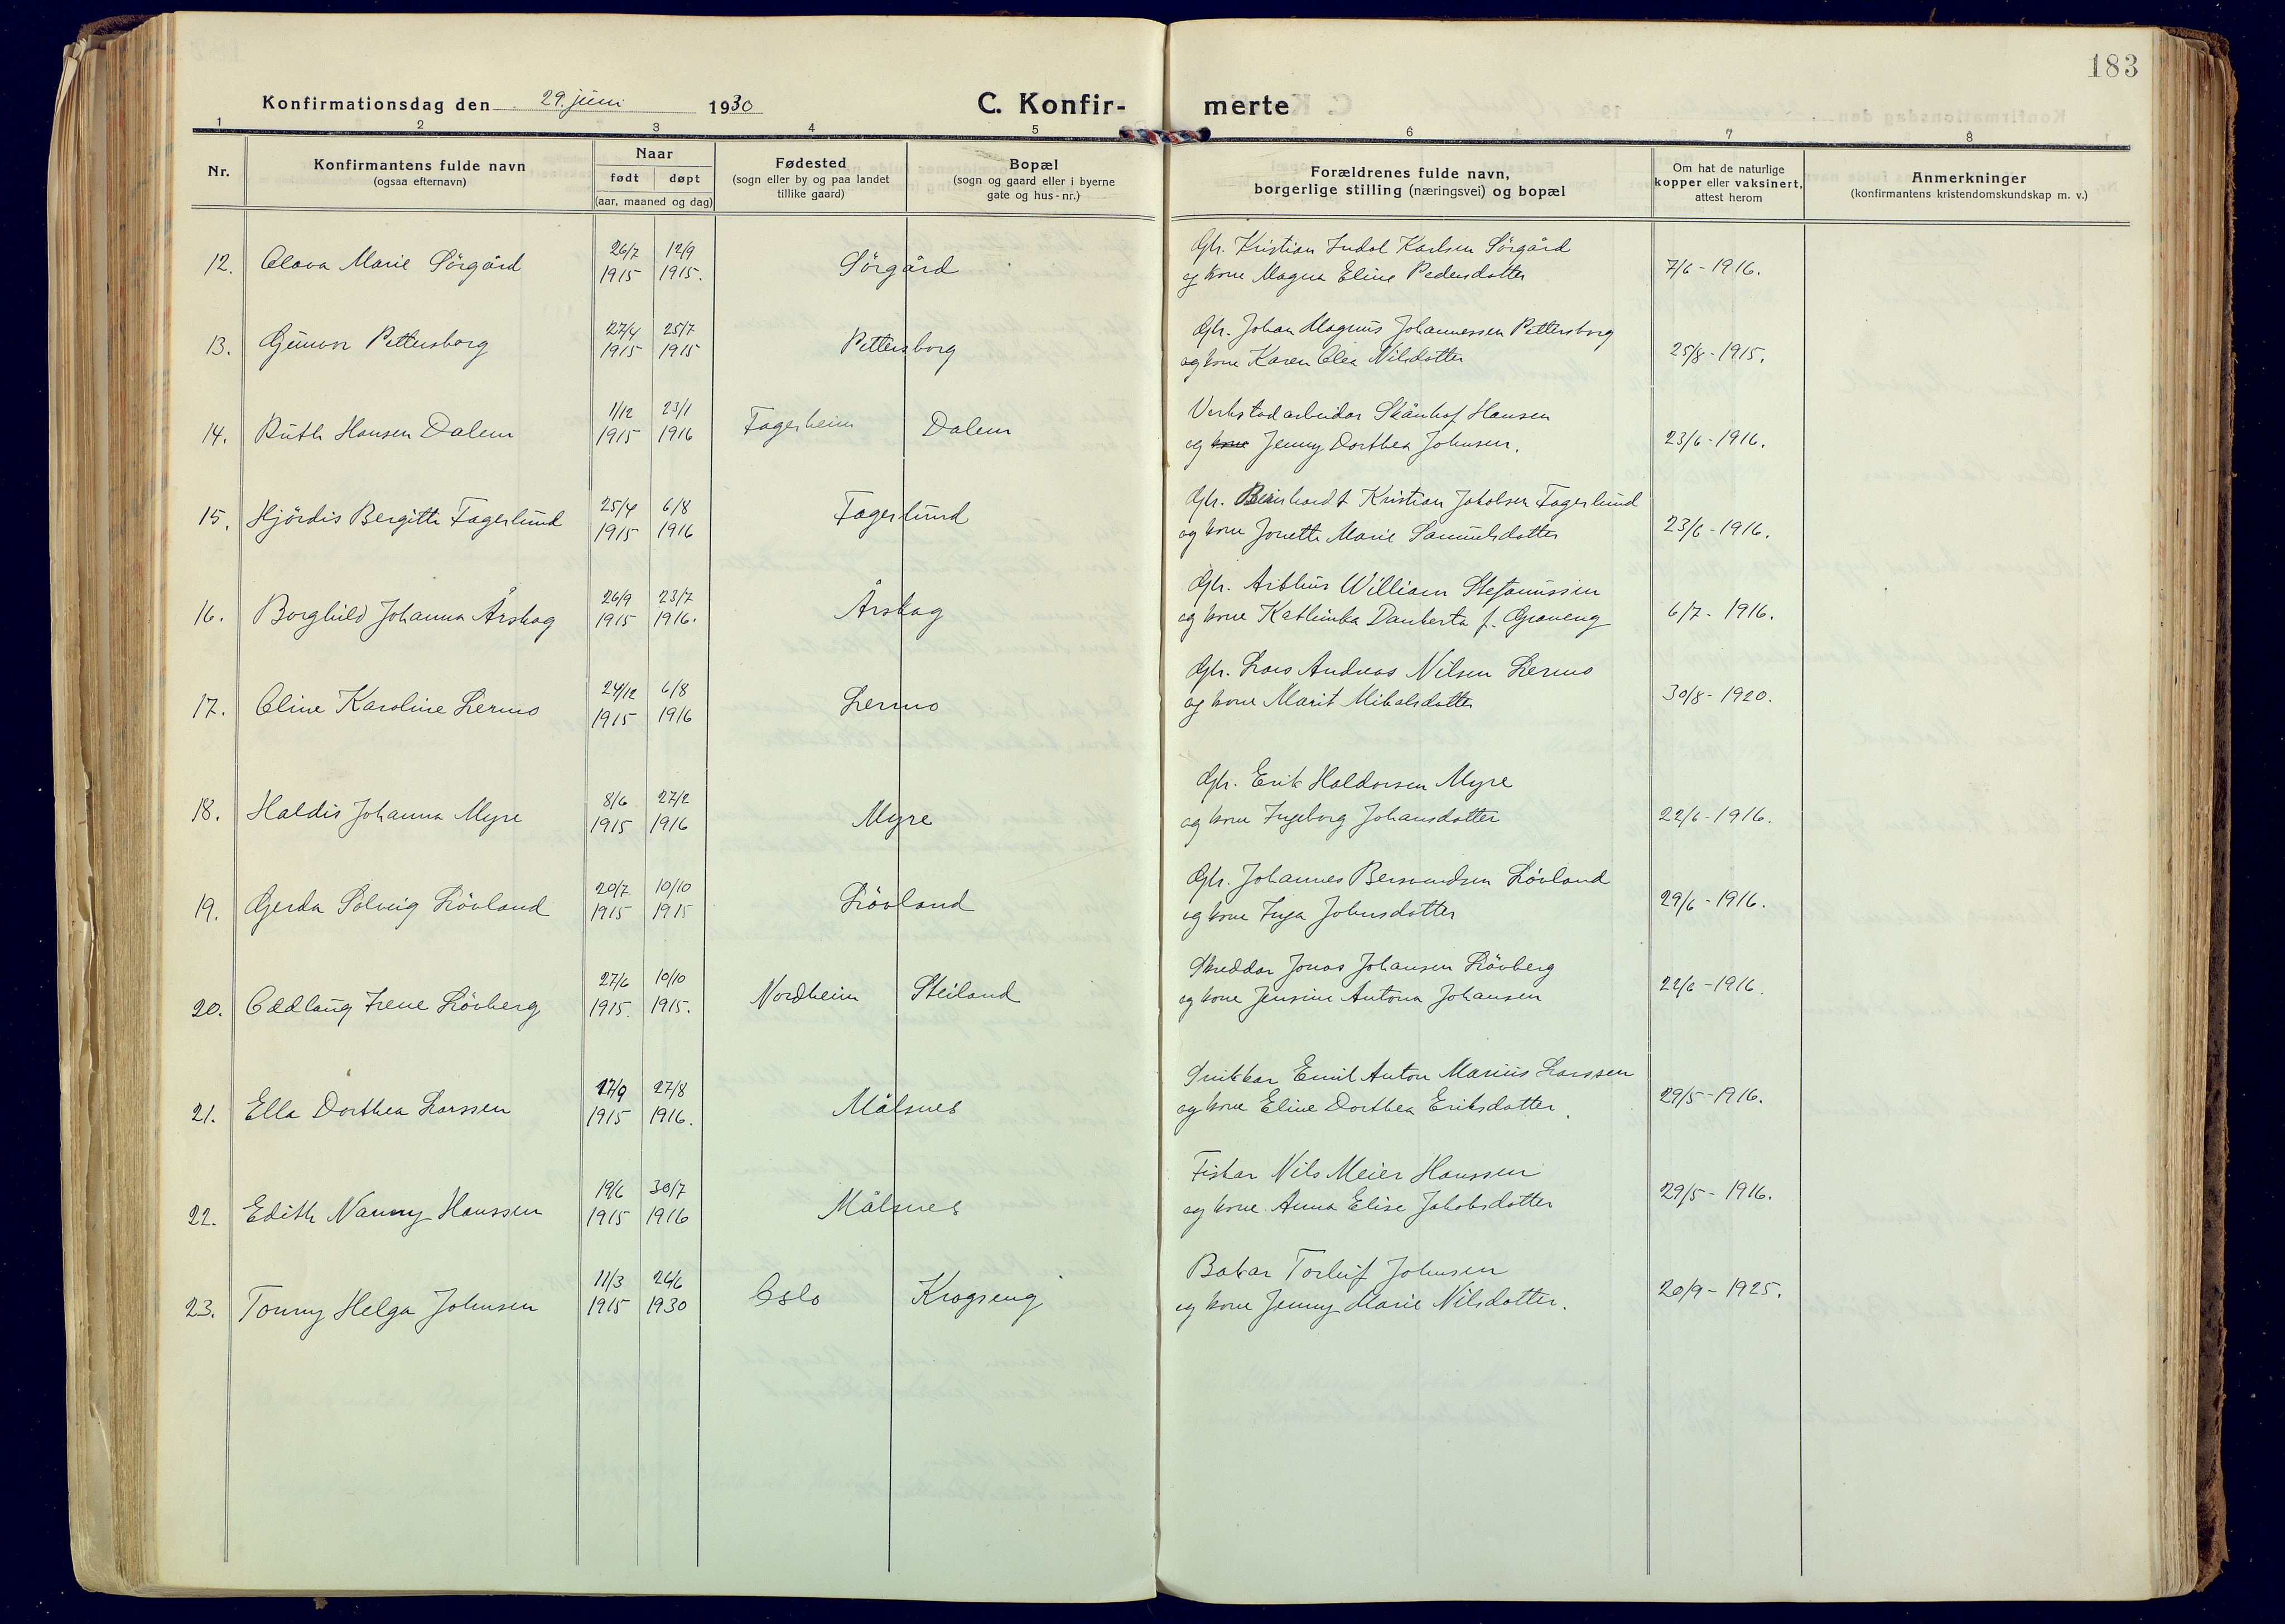 183
Konfirmationsdag den 29. juni 1930 C. Konfir- merte
1 2 3 4 5 6 7 8
Nr. Konfirmantens fulde navn (ogsaa efternavn) Naar født døpt (aar, maaned og dag) Fødested (sogn eller by og paa landet tillike gaard) Bopæl (sogn og gaard eller i byerne gate og hus-nr.) Forældrenes fulde navn, borgerlige stilling (næringsvei) og bopæl Om hat de naturlige kopper eller vaksinert, attest herom Anmerkninger (konfirmantens kristendomskundskap m. v.)
26/7 12/9 Gbr. Kristian Indal Karlsen Sörgård
12. Olava Marie Sörgård 1915 1915. Sörgård og kone Magna Eline Pedersdotter 7/6 - 1916.
27/4 25/7 Gbr. Johan Magnus Johannessen Pettersborg
13. Gunvor Pettersborg 1915 1915 Pettersborg og kone Karen Olea Nilsdotter 25/8 - 1915.
1/12 23/1 Verkstadarbeidar Skånhof Hansen
14. Ruth Hansen Dalem 1915 1916 Fagerheim Dalem og kone Jenny Dorthea Johnsen. 23/6 - 1916.
25/4 6/8 Gbr. Bernhardt Kristian Jakobsen Fagerlund
15. Hjördis Bergitte Fagerlund 1915 1916 Fagerlund og kone Jonette Marie Samuelsdotter 23/6 - 1916.
26/9 23/7 Gbr. Arthur William Stefanussen
16. Borghild Johanna Årskog 1915 1916. Årskog og kone Kathinka Danberta f. Graneng 6/7 - 1916.
24/12 6/8 Gbr. Lars Andreas Nilsen Lermo
17. Oline Karoline Lermo 1915 1916 Lermo og kone Marit Mikalsdotter 30/8 - 1920.
8/6 27/2 Gbr. Erik Haldorsen Myre
18. Haldis Johanna Myre 1915 1916 Myre og kone Ingeborg Johansdotter 22/6 - 1916.
20/7 10/10 Gbr. Johannes Bersvendsen Lövland
19. Gerda Solveig Lövland 1915 1915 Lövland og kone Inga Johnsdotter 29/6 - 1916.
27/6 10/10 Skreddar Jonas Johansen Lövberg
20. Oddlaug Irene Lövberg 1915. 1915. Nordheim Steiland og kone Jensine Antona Johansen 22/6 - 1916.
17/9 27/8 Snikkar Emil Anton Marius Larssen
21. Ella Dorthea Larssen 1915 1916. Målsnes og kone Eline Dorthea Eriksdotter. 29/5 - 1916.
19/6 30/7 Fiskar Nils Meier Hanssen
22. Edith Nanny Hanssen 1915 1916 Målsnes og kone Anna Elise Jakobsdotter 29/5 - 1916.
11/3 26/6 Bakar Torleif Johnsen
23. Tonny Helga Johnsen 1915 1930 Oslo Krogseng og kone Jenny Marie Nilsdotter. 20/9 - 1925.